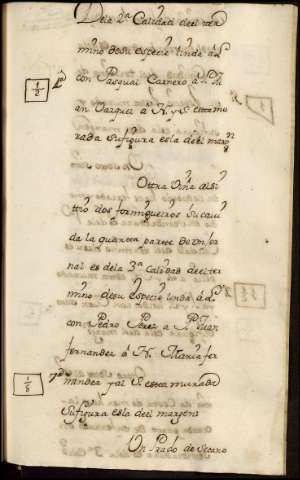 Dela 2ª Calidad del ter
mino desu especie linda à L.
con Pasqual Carnero à P. Ju
an Vazquez à N. y S. esta mu
rada su figura es la del marg.n
Ottra Viña al sit
ttio dos formigueiros su cavi
da la quarta parte de un for
nal es dela 3ª Calidad del ter
mino desu especie linda à L.
con Pedro Perez à P. Juan
fernandez à N. Maria fer
nandez y al S. esta murada
su figura es la del margen
Un Prado de Secano
1/2
1/8